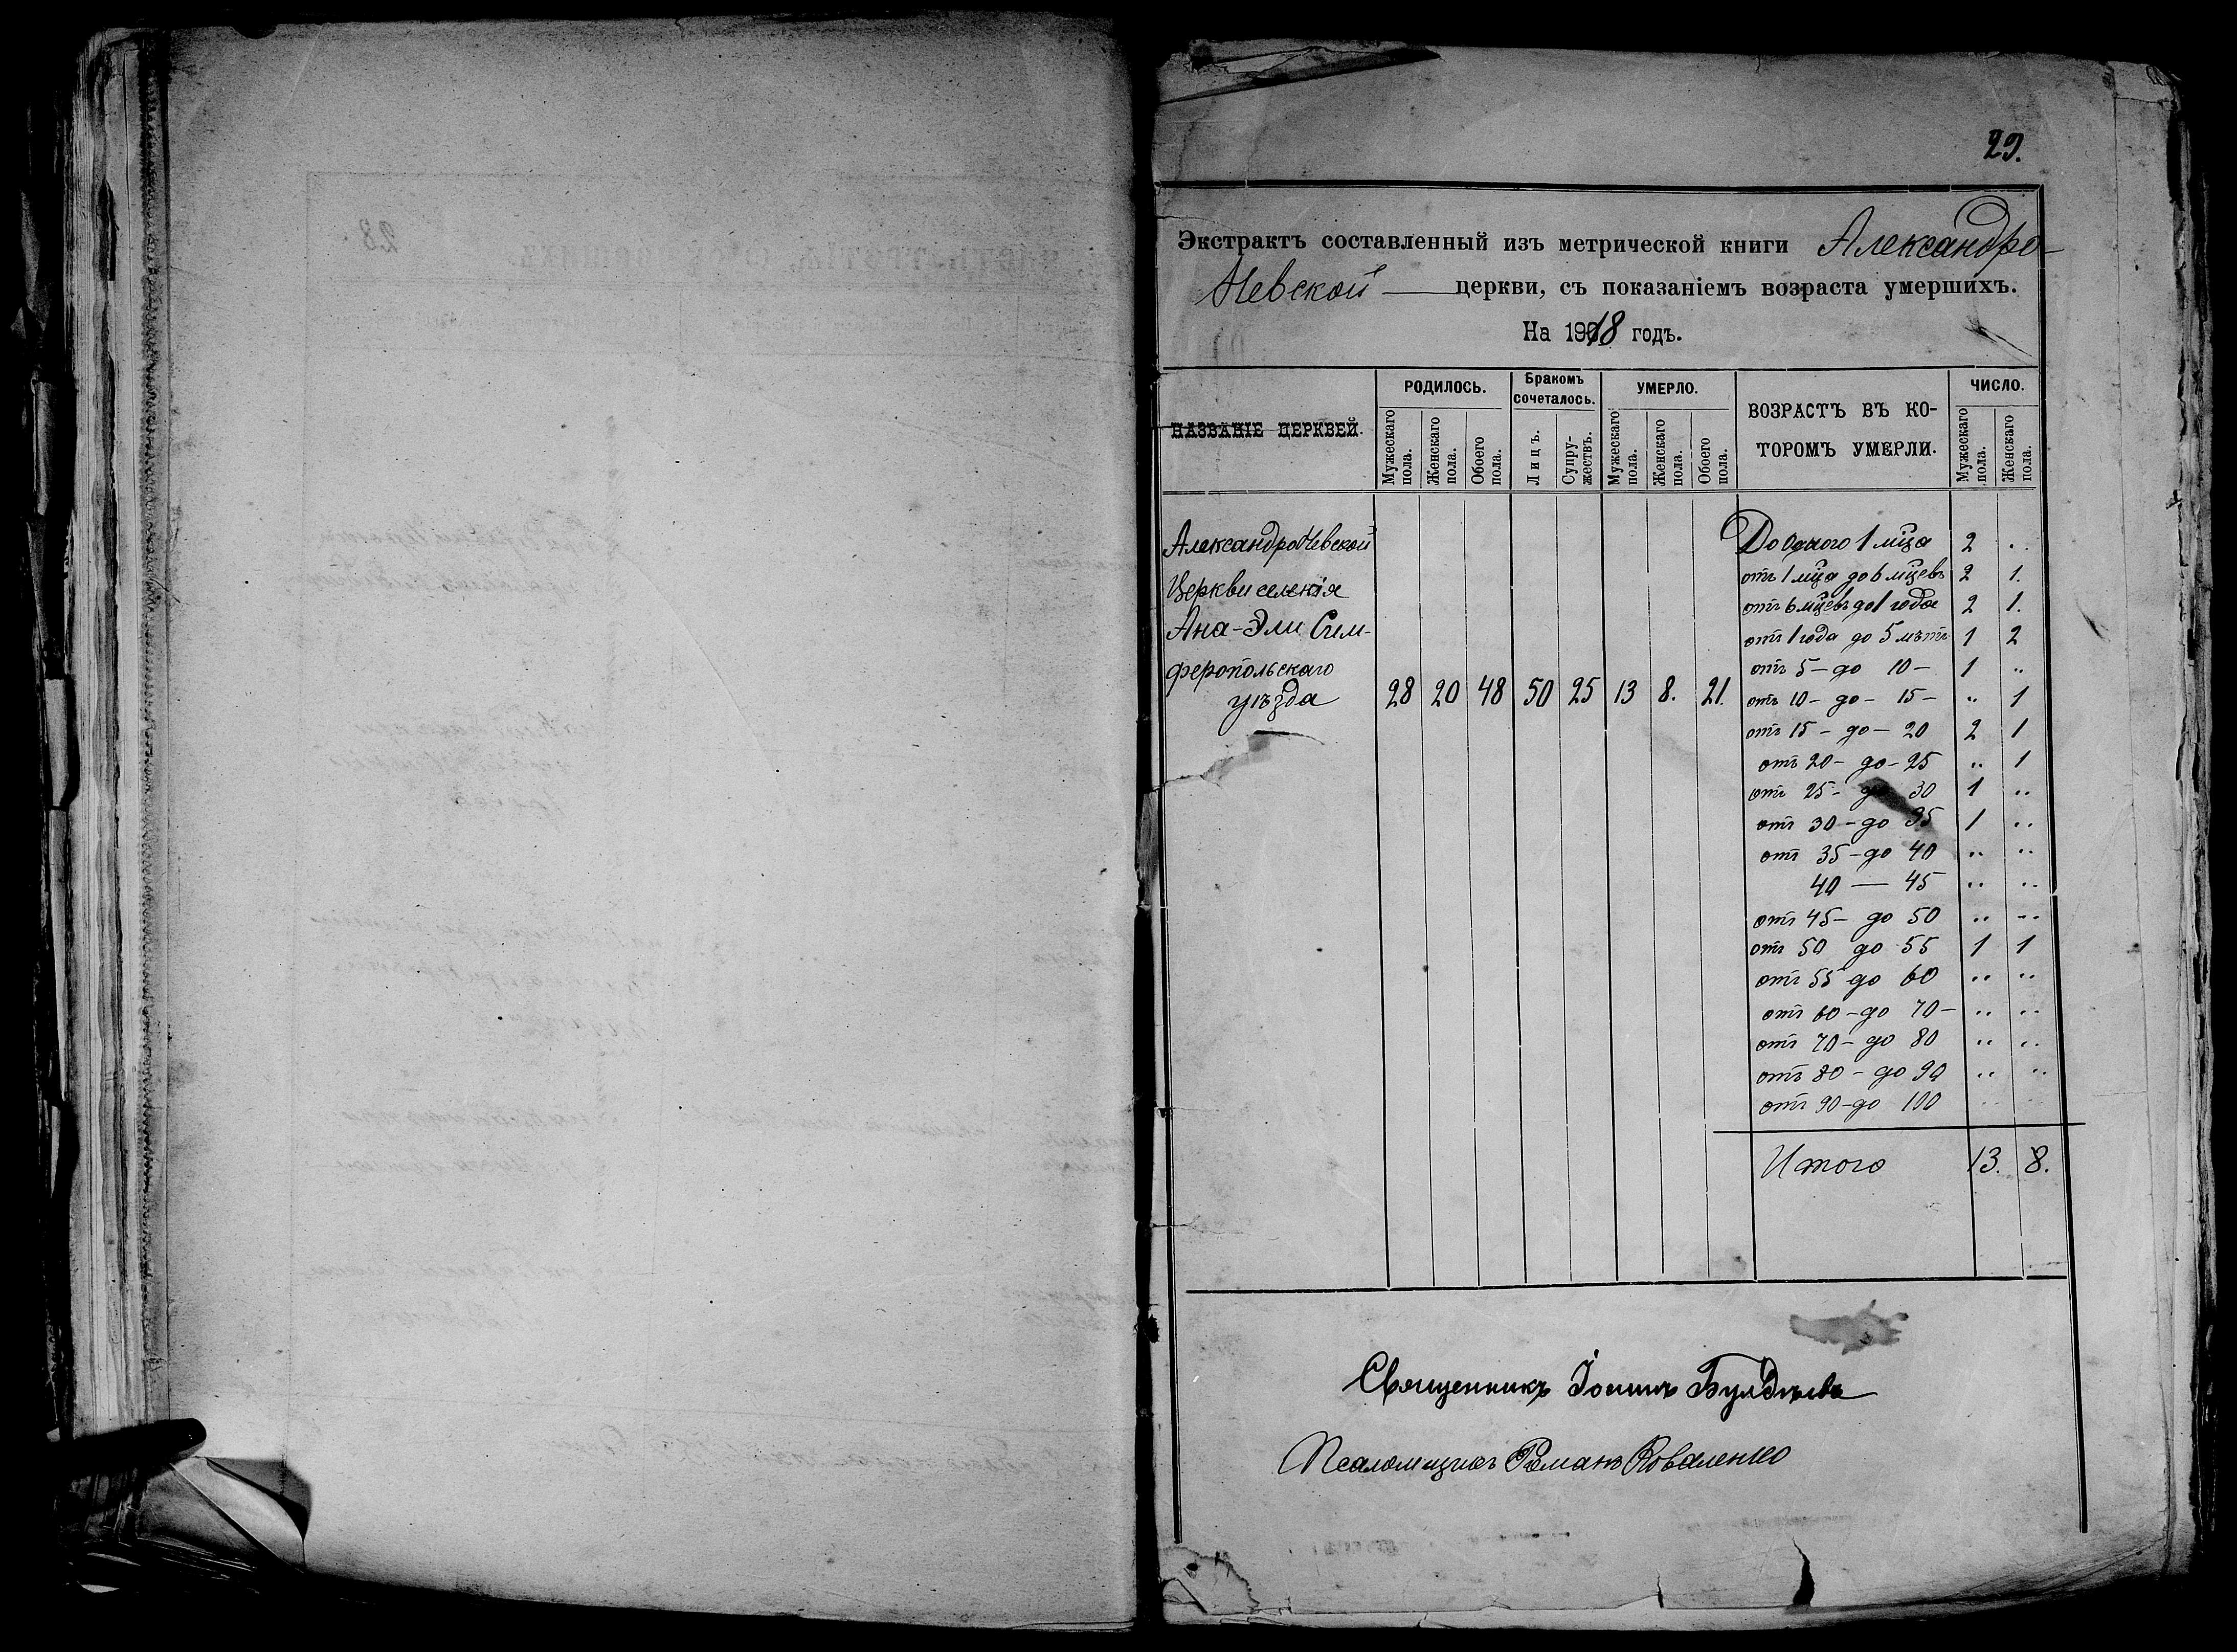 29.
Экстрактъ составленный изъ метрической книги Александро-
Невской церкви, съ показаніемъ возраста умершихъ.
На 1918 годъ.
НАЗВАНІЕ ЦЕРКВЕЙ.
РОДИЛОСЬ.
Мужескаго пола.
Женскаго пола.
Обоего пола.
Бракомъ сочеталось.
Лицъ.
Супру-жествъ.
УМЕРЛО.
Мужескаго пола.
Женскаго пола.
Обоего пола.
ВОЗРАСТЪ ВЪ КО-
ТОРОМЪ УМЕРЛИ.
ЧИСЛО.
Мужескаго пола.
Женскаго пола.
АлександроНевской
Церкви селенія
Ана-Эли Сим-
феропольскаго
уѣзда 28 20 48 50 25 13 8. 21.
До одного 1 мѣца 2 ..
отъ 1 мца до 6 мцевъ 2 1.
отъ 6 мцевъ до 1 года 2 1.
отъ 1 года до 5 лѣтъ 1 2
отъ 5 - до 10 - 1 ..
отъ 10 - до - 15 - .. 1
отъ 15 - до - 20 2 1
отъ 20 - до - 25 .. 1
отъ 25 - до 30 1 ..
отъ 30 - до 35 1 ..
отъ 35 - до 40 .. ..
40 — 45 .. ..
отъ 45 - до 50 .. ..
отъ 50 до 55 1 1
отъ 55 до 60 .. ..
отъ 60 - до 70 - .. ..
отъ 70 - до 80 .. ..
отъ 80 - до 90 .. ..
отъ 90 - до 100 .. ..
Итого 13. 8.
Священникъ Іоаннъ Булдѣевъ
Псаломщикъ Романъ Коваленко